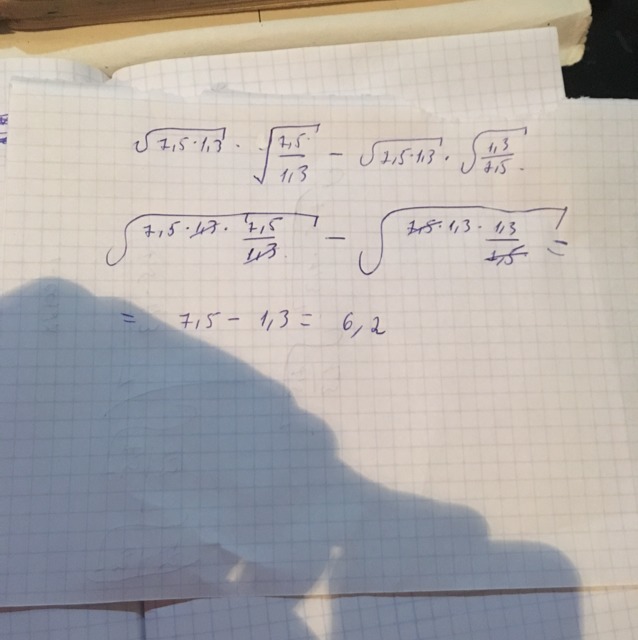 √7,5·1,3 · √7,5/1,3 − √7,5·1,3 · √1,3/7,5.
√7,5·1,3·7,5/1,3 − √7,5·1,3·1,3/7,5 =
= 7,5 − 1,3 = 6,2